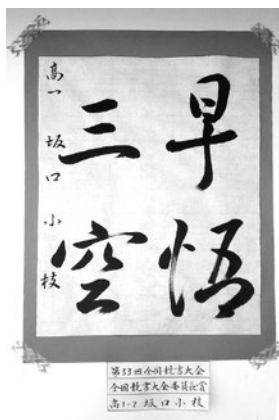 早悟
三空
高一 坂口 小枝
第53回全国競書大会
全国競書大会委員長賞
高1-2 坂口小枝